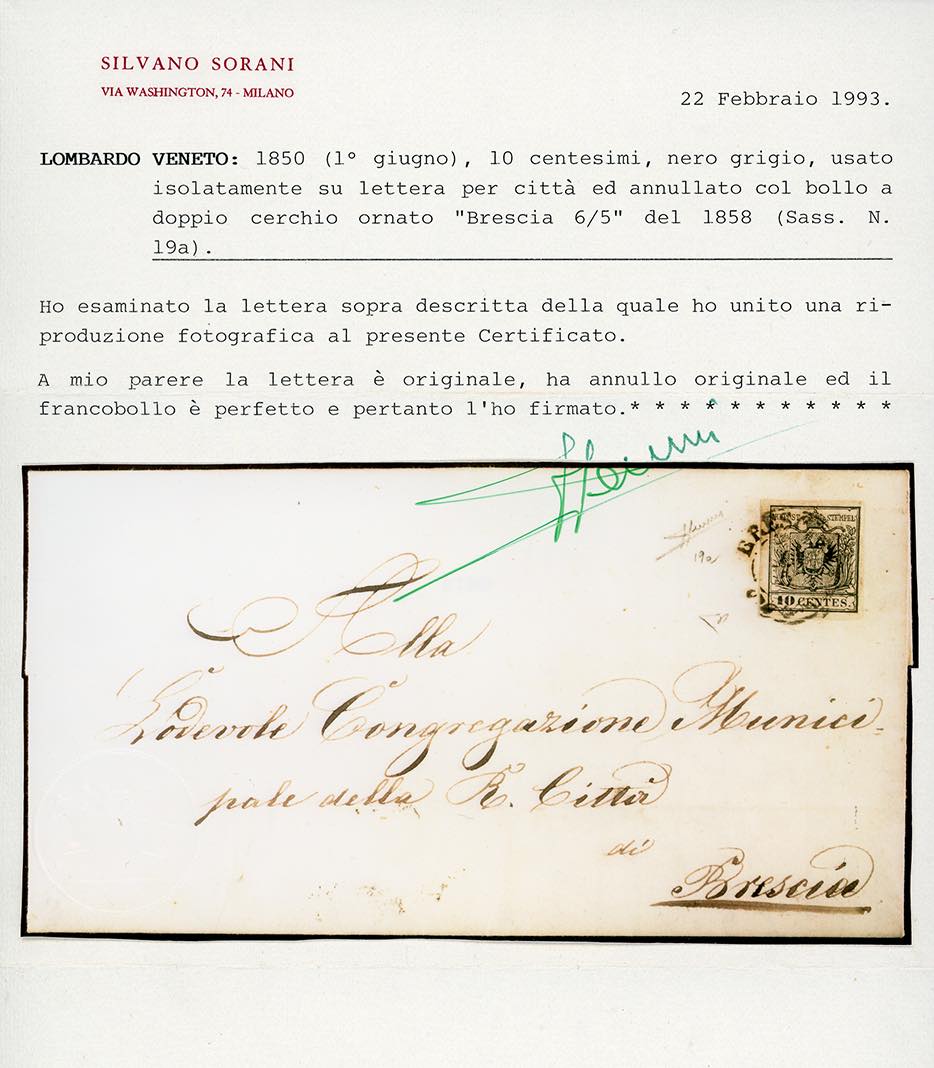 SILVANO SORANI
VIA WASHINGTON, 74 - MILANO
22 Febbraio 1993.
LOMBARDO VENETO: 1850 (1° giugno), 10 centesimi, nero grigio, usato
isolatamente su lettera per città ed annullato col bollo a
doppio cerchio ornato "Brescia 6/5" del 1858 (Sass. N.
19a).
Ho esaminato la lettera sopra descritta della quale ho unito una ri-
produzione fotografica al presente Certificato.
A mio parere la lettera è originale, ha annullo originale ed il
francobollo è perfetto e pertanto l'ho firmato.* * * * * * * * * * *
STEMPEL
BRE
19a
10 CENTES.
Alla
Lodevole Congregazione Munici-
pale della R. Città
di
Brescia